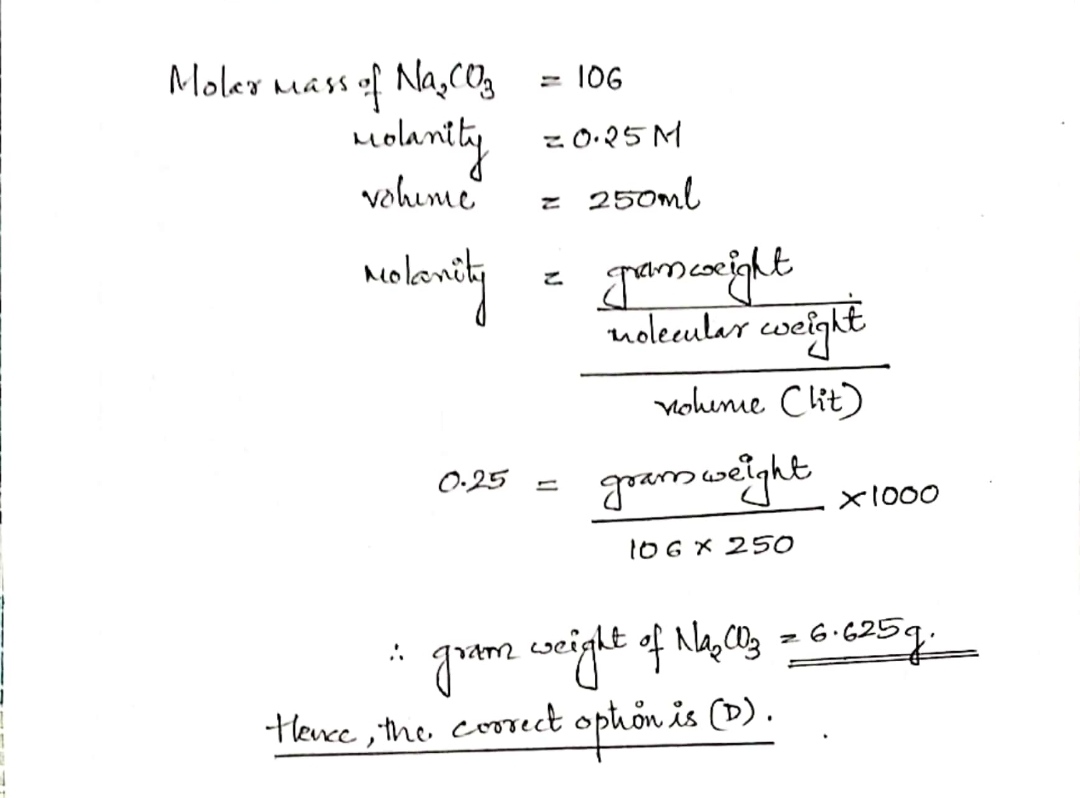 Molar mass of Na₂CO₃ = 106
molarity = 0.25 M
volume = 250ml
Molarity = gram weight
molecular weight
volume (lit)
0.25 = gram weight ×1000
106 × 250
∴ gram weight of Na₂CO₃ = 6.625g.
Hence, the correct option is (D).